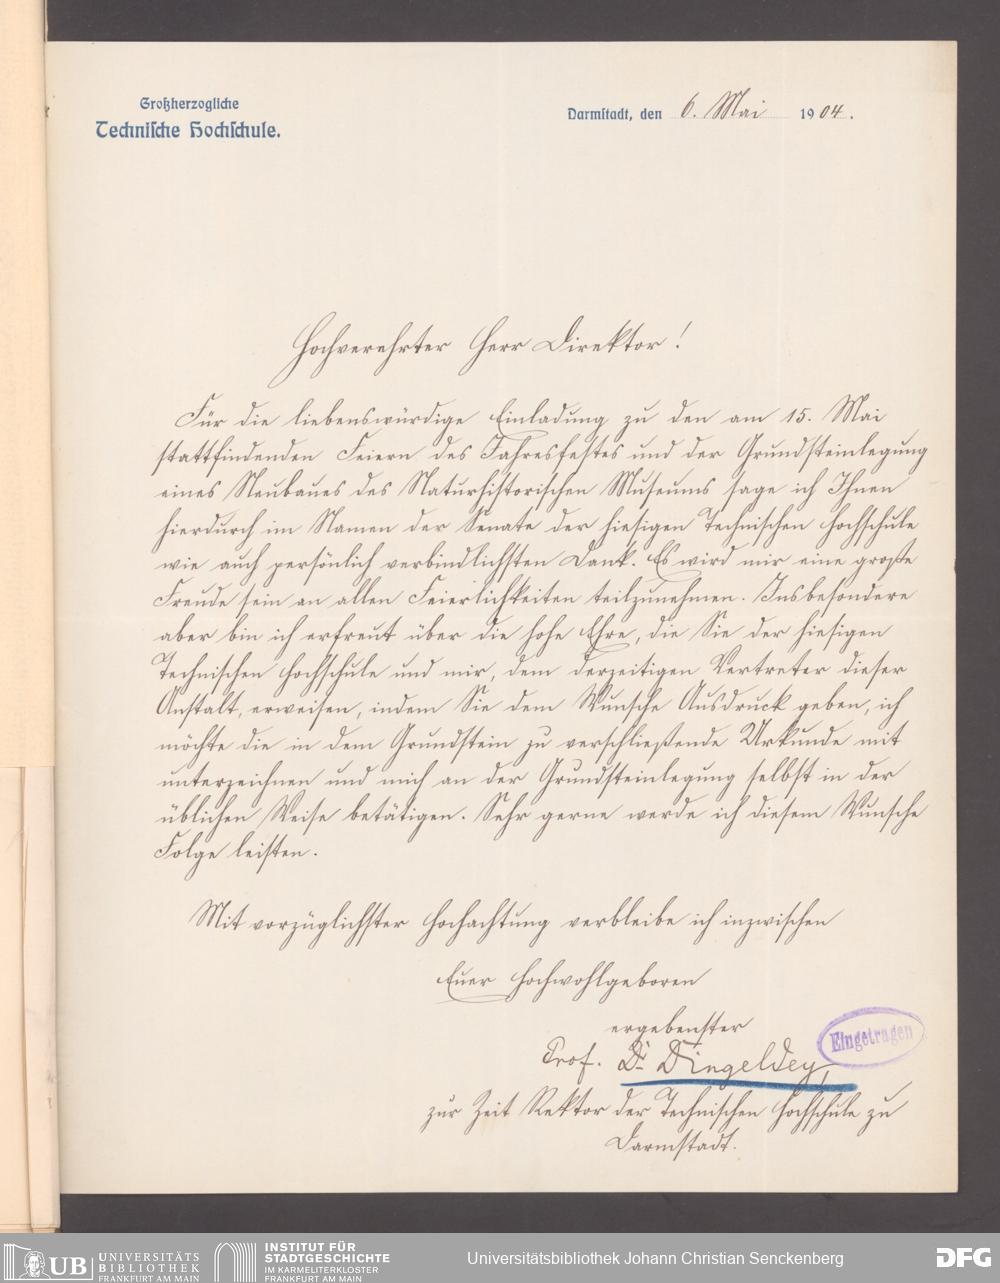 Großherzogliche
Technische Hochschule.
Darmstadt, den 6. Mai 1904.
Hochverehrter Herr Direktor!
Für die liebenswürdige Einladung zu den am 15. Mai
stattfindenden Feiern des Jahresfestes und der Grundsteinlegung
eines Neubaues des Naturhistorischen Museums sage ich Ihnen
hierdurch im Namen der Senate der hiesigen Technischen Hochschule
wie auch persönlich verbindlichsten Dank. Es wird mir eine große
Freude sein an allen Feierlichkeiten teilzunehmen. Insbesondere
aber bin ich erfreut über die hohe Ehre, die Sie der hiesigen
Technischen Hochschule und mir, dem derzeitigen Vertreter dieser
Anstalt, erweisen, indem Sie dem Wunsche Ausdruck geben, ich
möchte die in dem Grundstein zu verschließende Urkunde mit
unterzeichnen und mich an der Grundsteinlegung selbst in der
üblichen Weise betätigen. Sehr gerne werde ich diesem Wunsche
Folge leisten.
Mit vorzüglichster Hochachtung verbleibe ich inzwischen
Euer Hochwohlgeboren
ergebenster
Eingetragen
Prof. Dr. Dingeldey,
zur Zeit Rektor der Technischen Hochschule zu
Darmstadt.
UB UNIVERSITÄTS
BIBLIOTHEK
FRANKFURT AM MAIN
INSTITUT FÜR
STADTGESCHICHTE
IM KARMELITERKLOSTER
FRANKFURT AM MAIN
Universitätsbibliothek Johann Christian Senckenberg
DFG